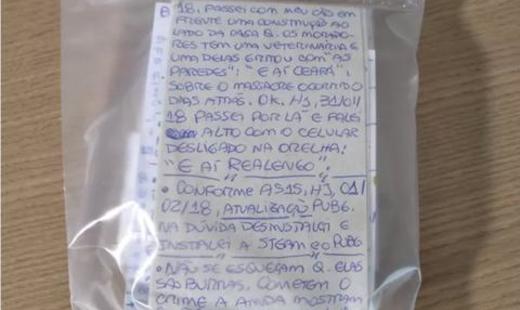 18, PASSEI COM MEU CÃO EM
FRENTE UMA CONSTRUÇÃO AO
LADO DA CASA Q. OS MORADO-
RES TÊM UMA VETERINÁRIA E
UMA DELAS GRITOU COM "AS
PAREDES": "E AÍ CEARÁ",
SOBRE O MASSACRE OCORRIDO
DIAS ATRÁS. OK. HJ, 31/01/
18 PASSEI POR LÁ E FALEI
ALTO COM O CELULAR
DESLIGADO NA ORELHA:
"E AÍ REALENGO".
• CONFORME AS15, HJ, 01/
02/18, ATUALIZAÇÃO PUBG.
NA DÚVIDA DESINSTALEI E
INSTALEI A STEAM E O PUBG
• NÃO SE ESQUEÇAM Q. ELAS
SÃO BURRAS, COMETEM O
CRIME E AINDA MOSTRAM